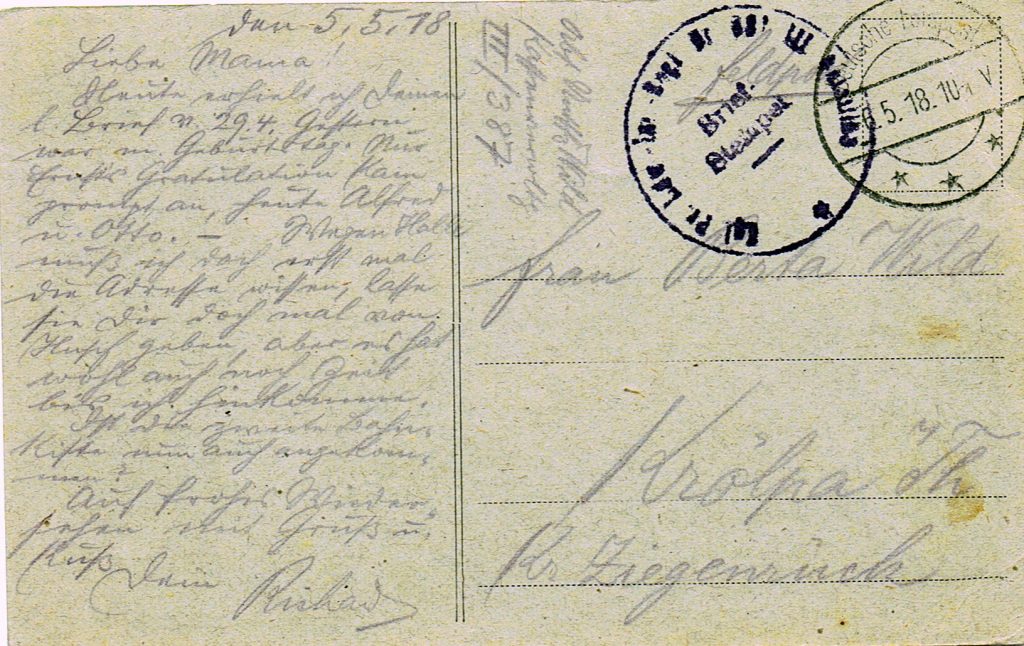 den 5.5.18
Liebe Mama!
Heute erhielt ich Deinen
l. Brief v. 29.4. Gestern
war m. Geburtstag. Nur
Ernsts Gratulation kam
prompt an, heute Alfred
u. Otto. — Wegen
muß ich doch erst mal
die Adresse wissen, lasse
sie Dir doch mal von
geben, aber es hat
wohl auch noch Zeit
bis ich hinkomme.
Ist die zweite Bahn-
kiste nun auch angekom-
men?
Auf frohes Wieder-
sehen mit Gruß u.
Kuß Dein
Richard
Wild
III/387
Feldpost
Brief-
Stempel
5.18.10 V
Frau Berta Wild
Krölpa i/Th
Kr. Ziegenrück